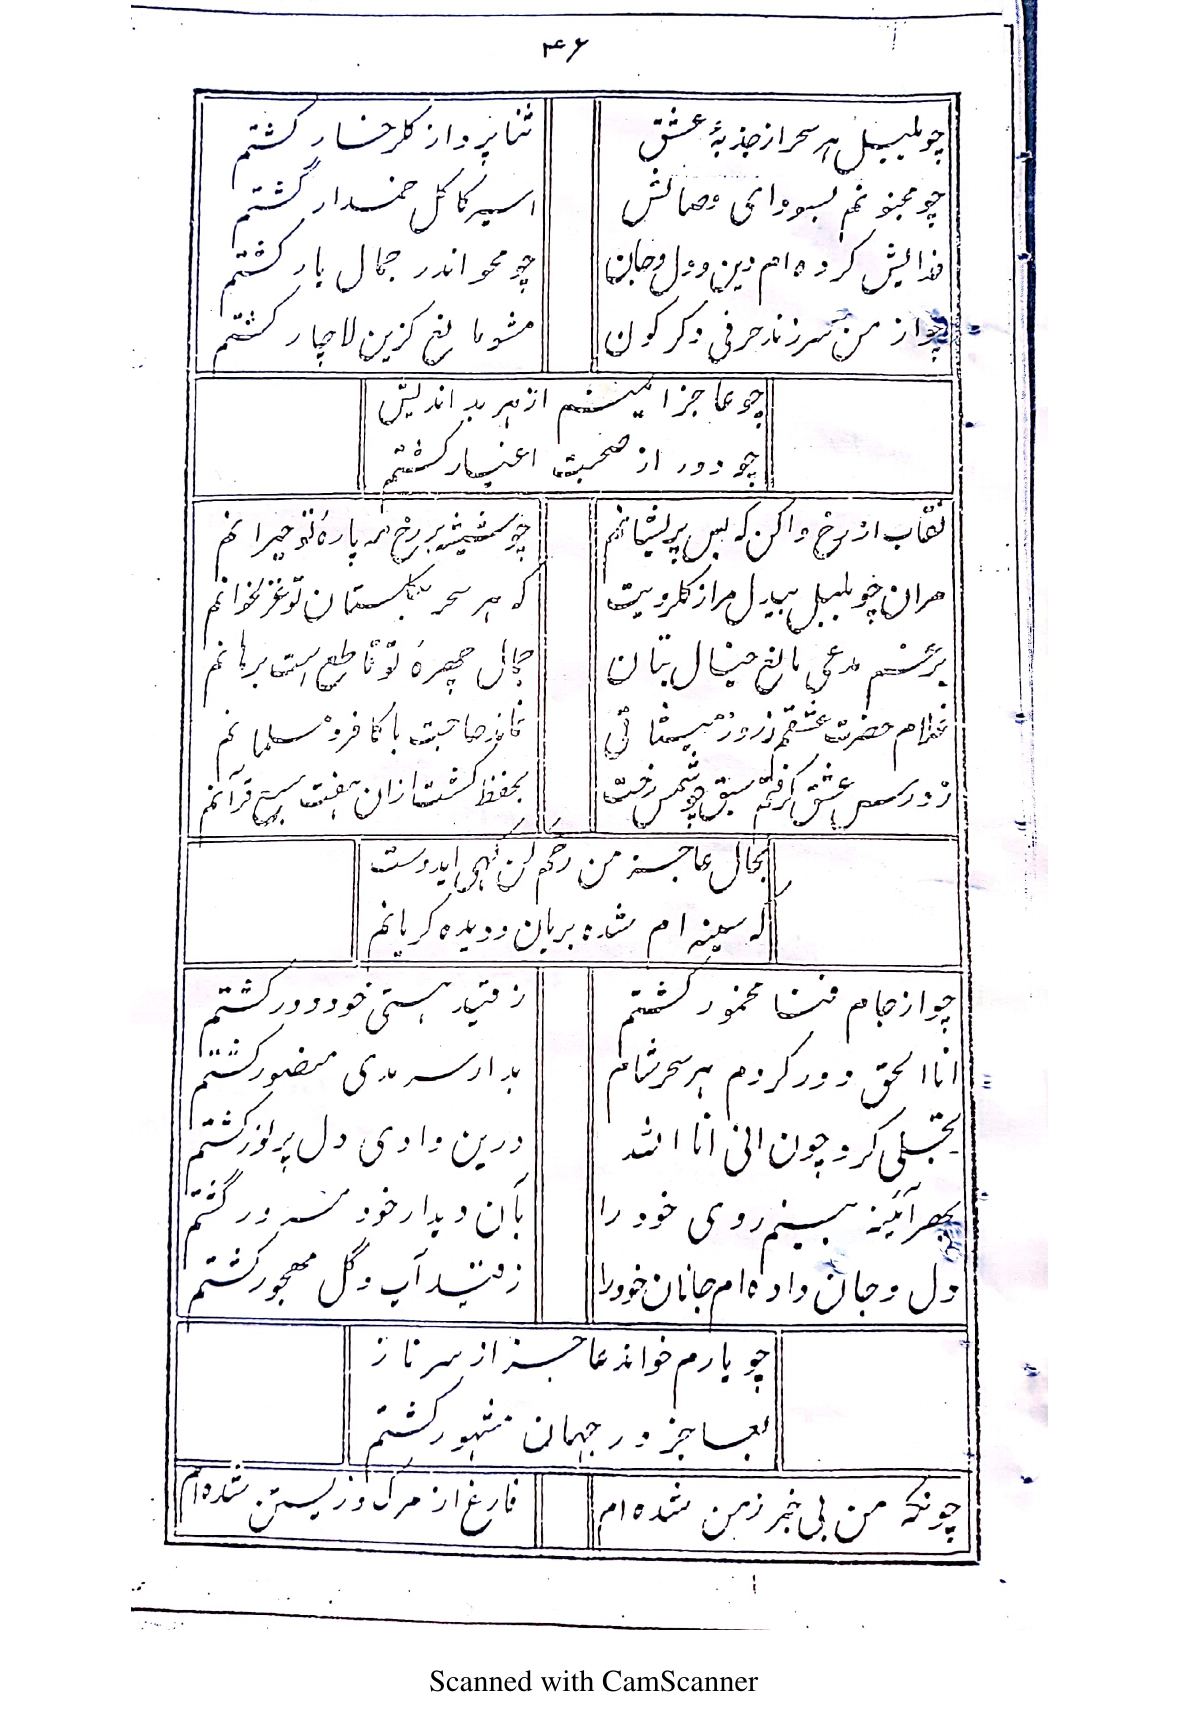 ۴۶
چو بلبل هر سحر از جذبهٔ عشق ثنا پرداز کلرخسار کشتم
چو مجنونم بسودای وصالش اسیر کاکل خمدار گشتم
فدایش کرده ام دین و دل و جان چو محو اندر جمال یار کشتم
چو از من سرزند حرفی دکرکون مشو مانع کزین لاچار کشتم
چو عاجز ایمنم از هر بد اندیش
چو دور از صحبت اغیار کشتم
نقاب از رخ واکن که بس پریشانم چو شیشه بر رخ مه پارهٔ تو حیرانم
مران چو بلبل بیدل مرا ز کلرویت که هر سحر بکلستان تو غزلخوانم
برغم مدعی مانع خیال بتان جمال چهرهٔ تو قاطع است برهانم
غلام حضرت عشقم ز روز میثاقی نماند حاجت با کافر و مسلمانم
ز درس عشق گرفتم سبق چو شمس رخت بحفظ کشت ازان هفت سبع قرآنم
بحال عاجز من رحم کن کهی ایدوست
که سینه ام شده بریان و دیده کریانم
چو از جام فنا مخمور کشتم ز قید هستی خود دور کشتم
انا الحق ورد کردم هر سحر شام بدار سرمدی منصور کشتم
تجلی کرد چون انی انا الله درین وادی دل پر نور کشتم
بهر آئینه بینم روی خود را بآن دیدار خود مسرور گشتم
دل و جان داده ام جانان خود را ز قید آب و گل مهجور کشتم
چو یارم خواند عاجز از سر ناز
بعاجز در جهان مشهور کشتم
چونکه من بی خبر ز من شده ام فارغ از مرک و زیستن شده ام
Scanned with CamScanner